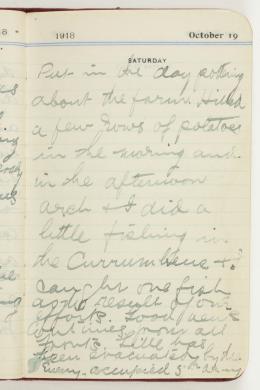 1918 October 19
SATURDAY
Put in the day potting
about the farm. Hilled
a few rows of potatoes
in the morning and
in the afternoon
Arch & I did a
little fishing in
the Currumbene &
caught one fish
as the result of our
efforts. Good news
continues from all
fronts. Lille has
been evacuated by the
enemy. occupied 5th Army